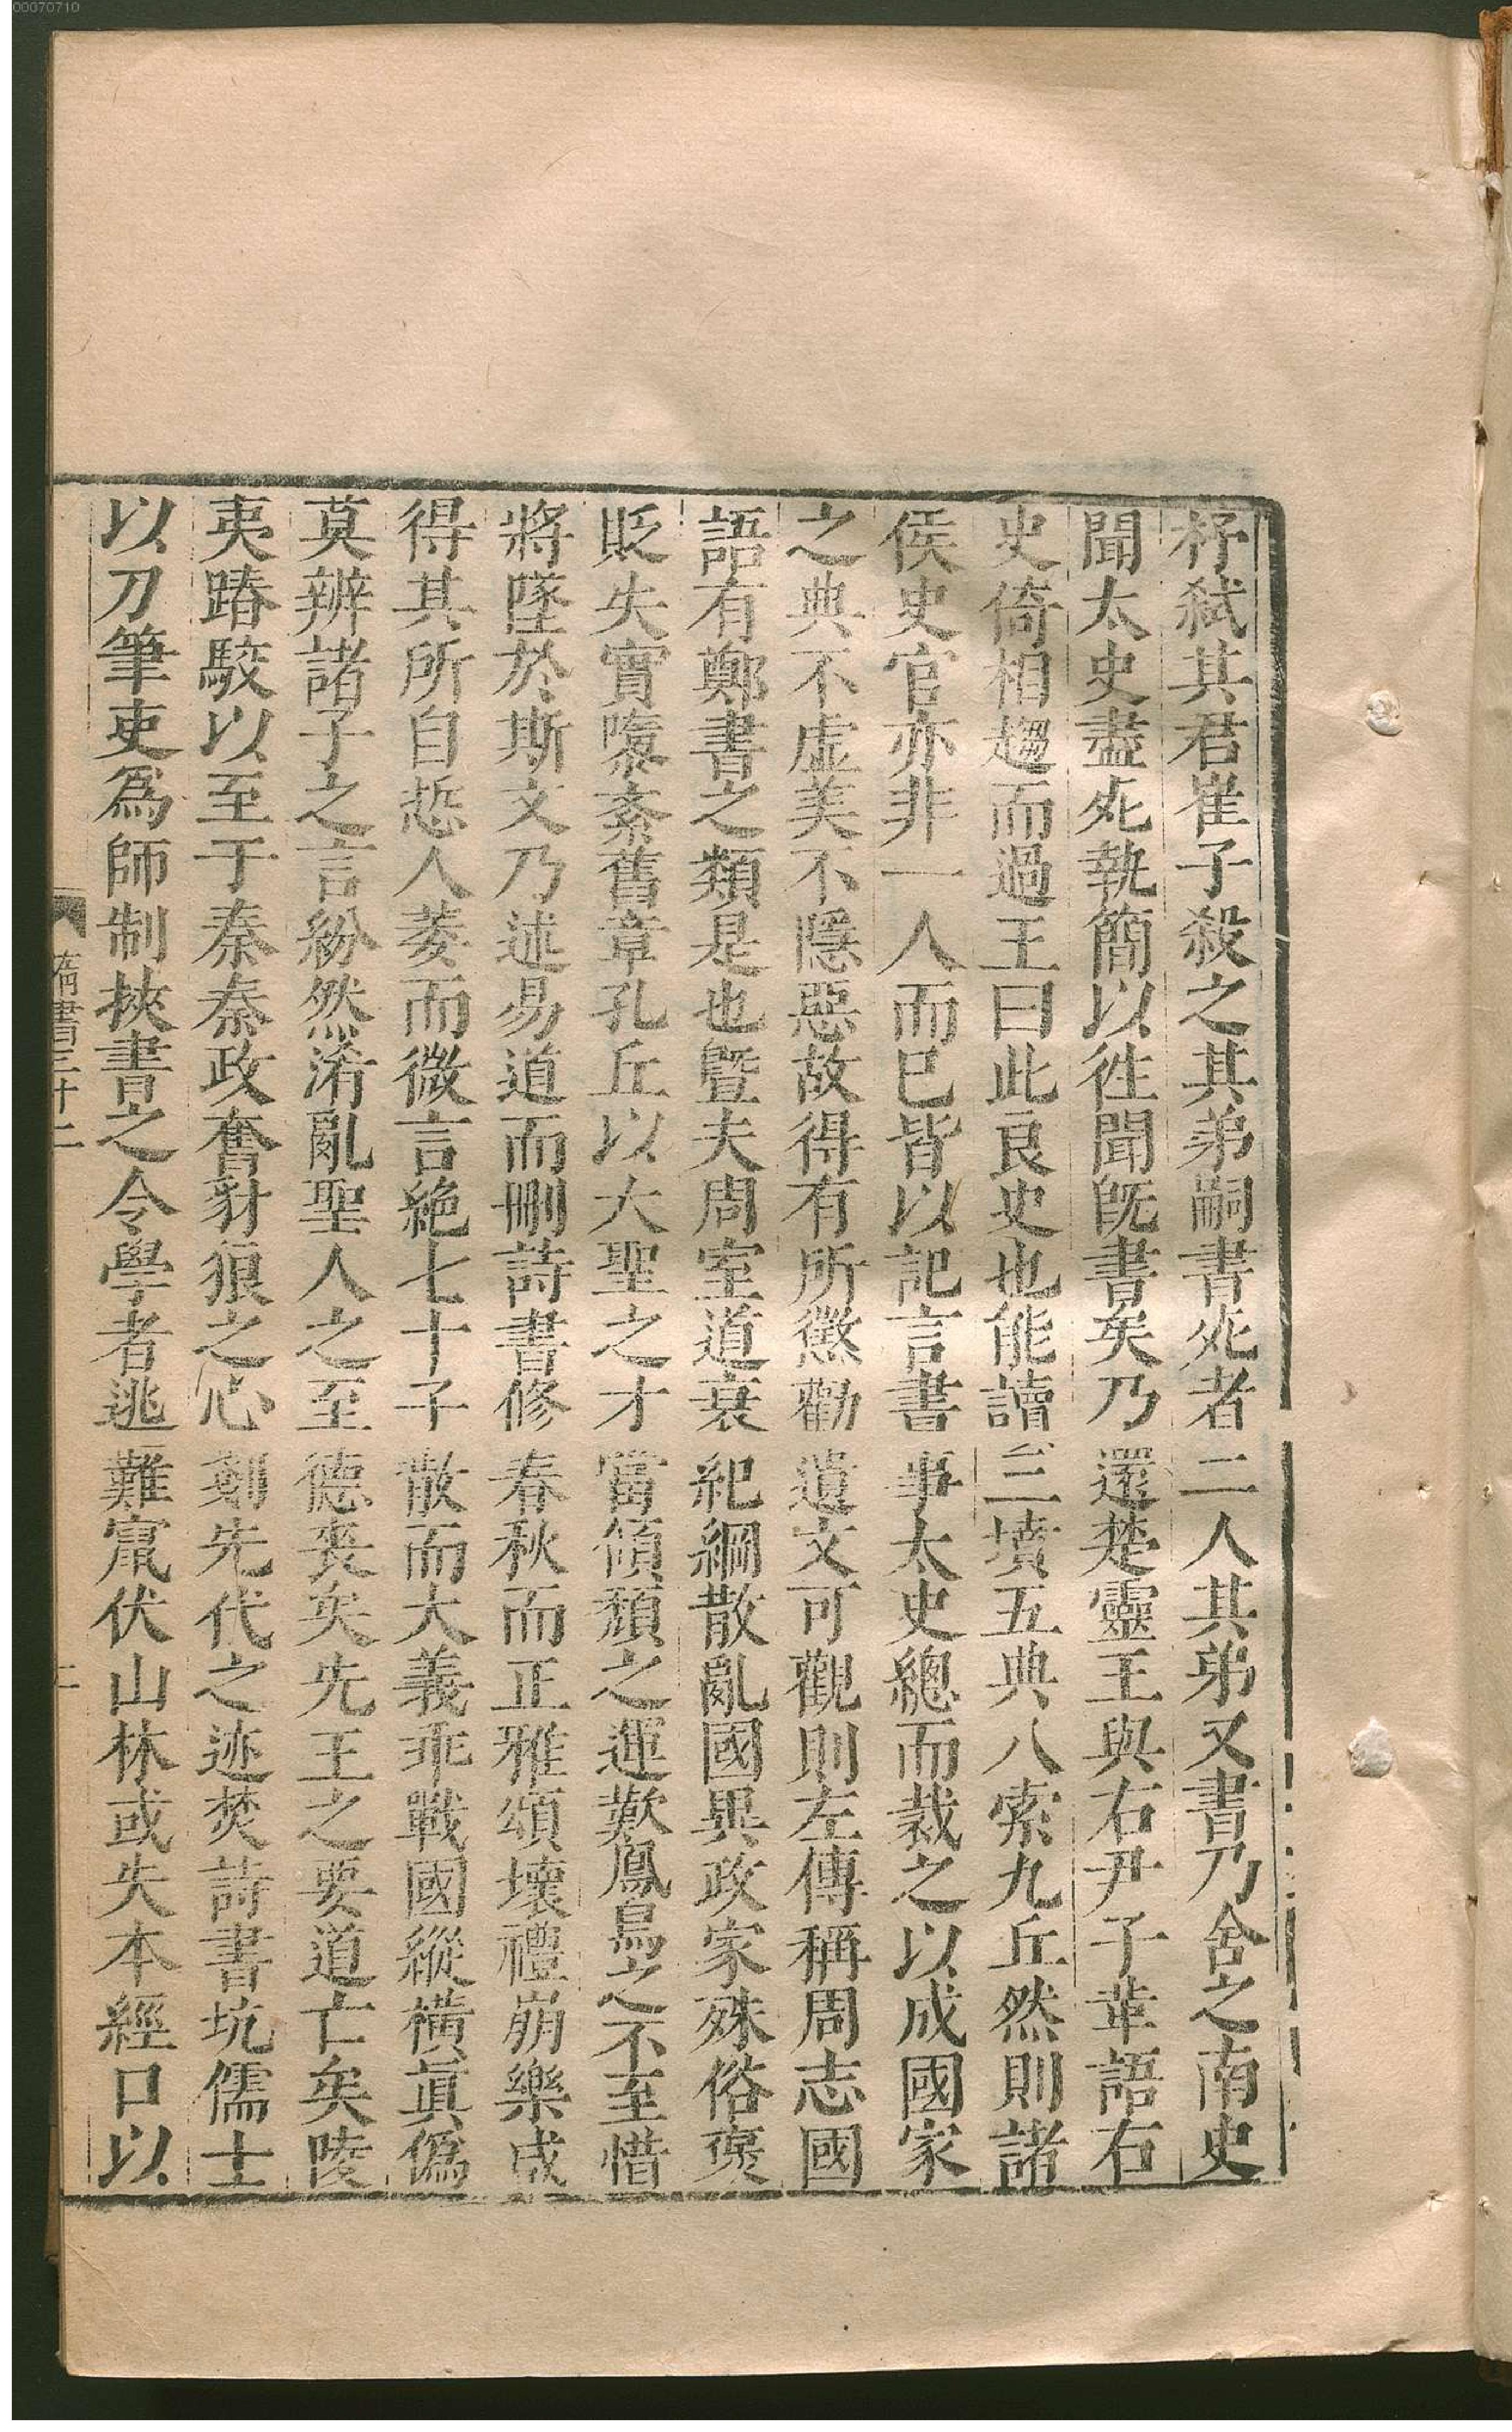 杼弑其君崔子殺之其弟嗣書死者二人其弟又書乃舍之南史
聞太史盡死執簡以徃聞旣書矣乃還楚靈王與右尹子革語右
史倚相趨而過王曰此良史也能讀三墳五典八索九丘然則諸
侯史官亦非一人而已皆以記言書事太史總而裁之以成國家
之典不虛美不隱惡故得有所懲勸遺文可觀則左傳稱周志國
語有鄭書之類是也暨夫周室道衰紀綱散亂國異政家殊俗褒
貶失實隳紊舊章孔丘以大聖之才當傾頹之運歎鳳鳥之不至惜
將墜於斯文乃述易道而刪詩書修春秋而正雅頌壞禮崩樂咸
得其所自哲人萎而微言絶七十子散而大義乖戰國縱橫眞僞
莫辨諸子之言紛然淆亂聖人之至德喪矣先王之要道亡矣陵
夷踳駮以至于秦秦政奮豺狼之心剗先代之迹焚詩書坑儒士
以刀筆吏爲師制挾書之令學者逃難竄伏山林或失本經口以
隋書三十二
二
00070710